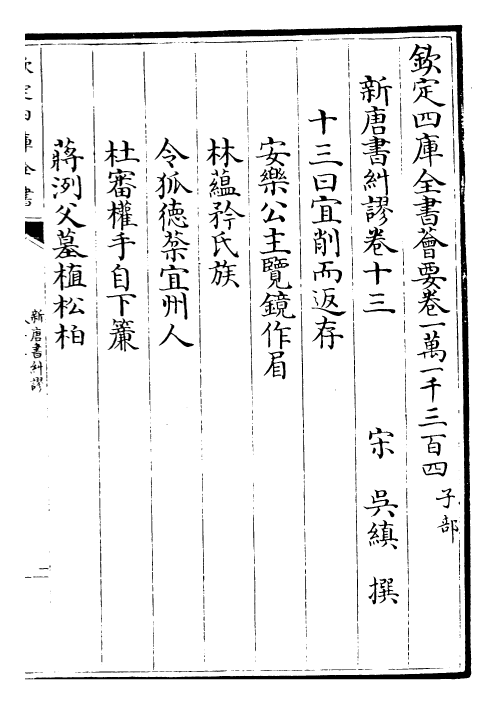 欽定四庫全書薈要卷一萬一千三百四 子部
新唐書糾謬卷十三 宋 吳縝 撰
十三曰宜削而返存
安樂公主覽鏡作眉
林蘊矜氏族
令狐德棻宜州人
杜審權手自下簾
蔣洌父墓植松柏
欽定四庫全書
新唐書糾謬